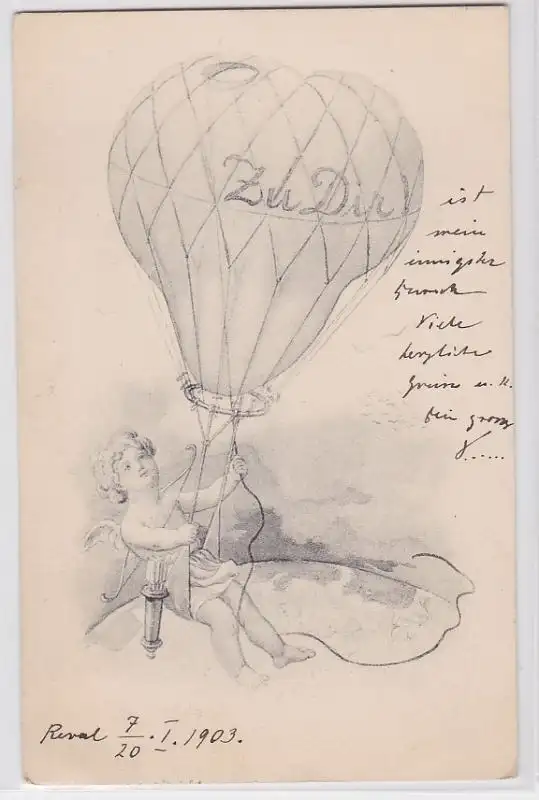 Zu Dir!
ist
mein
innigster
Wunsch
Viele
herzliche
Grüsse u. K.
Dein
V.....
Reval 7/20 . I. 1903.